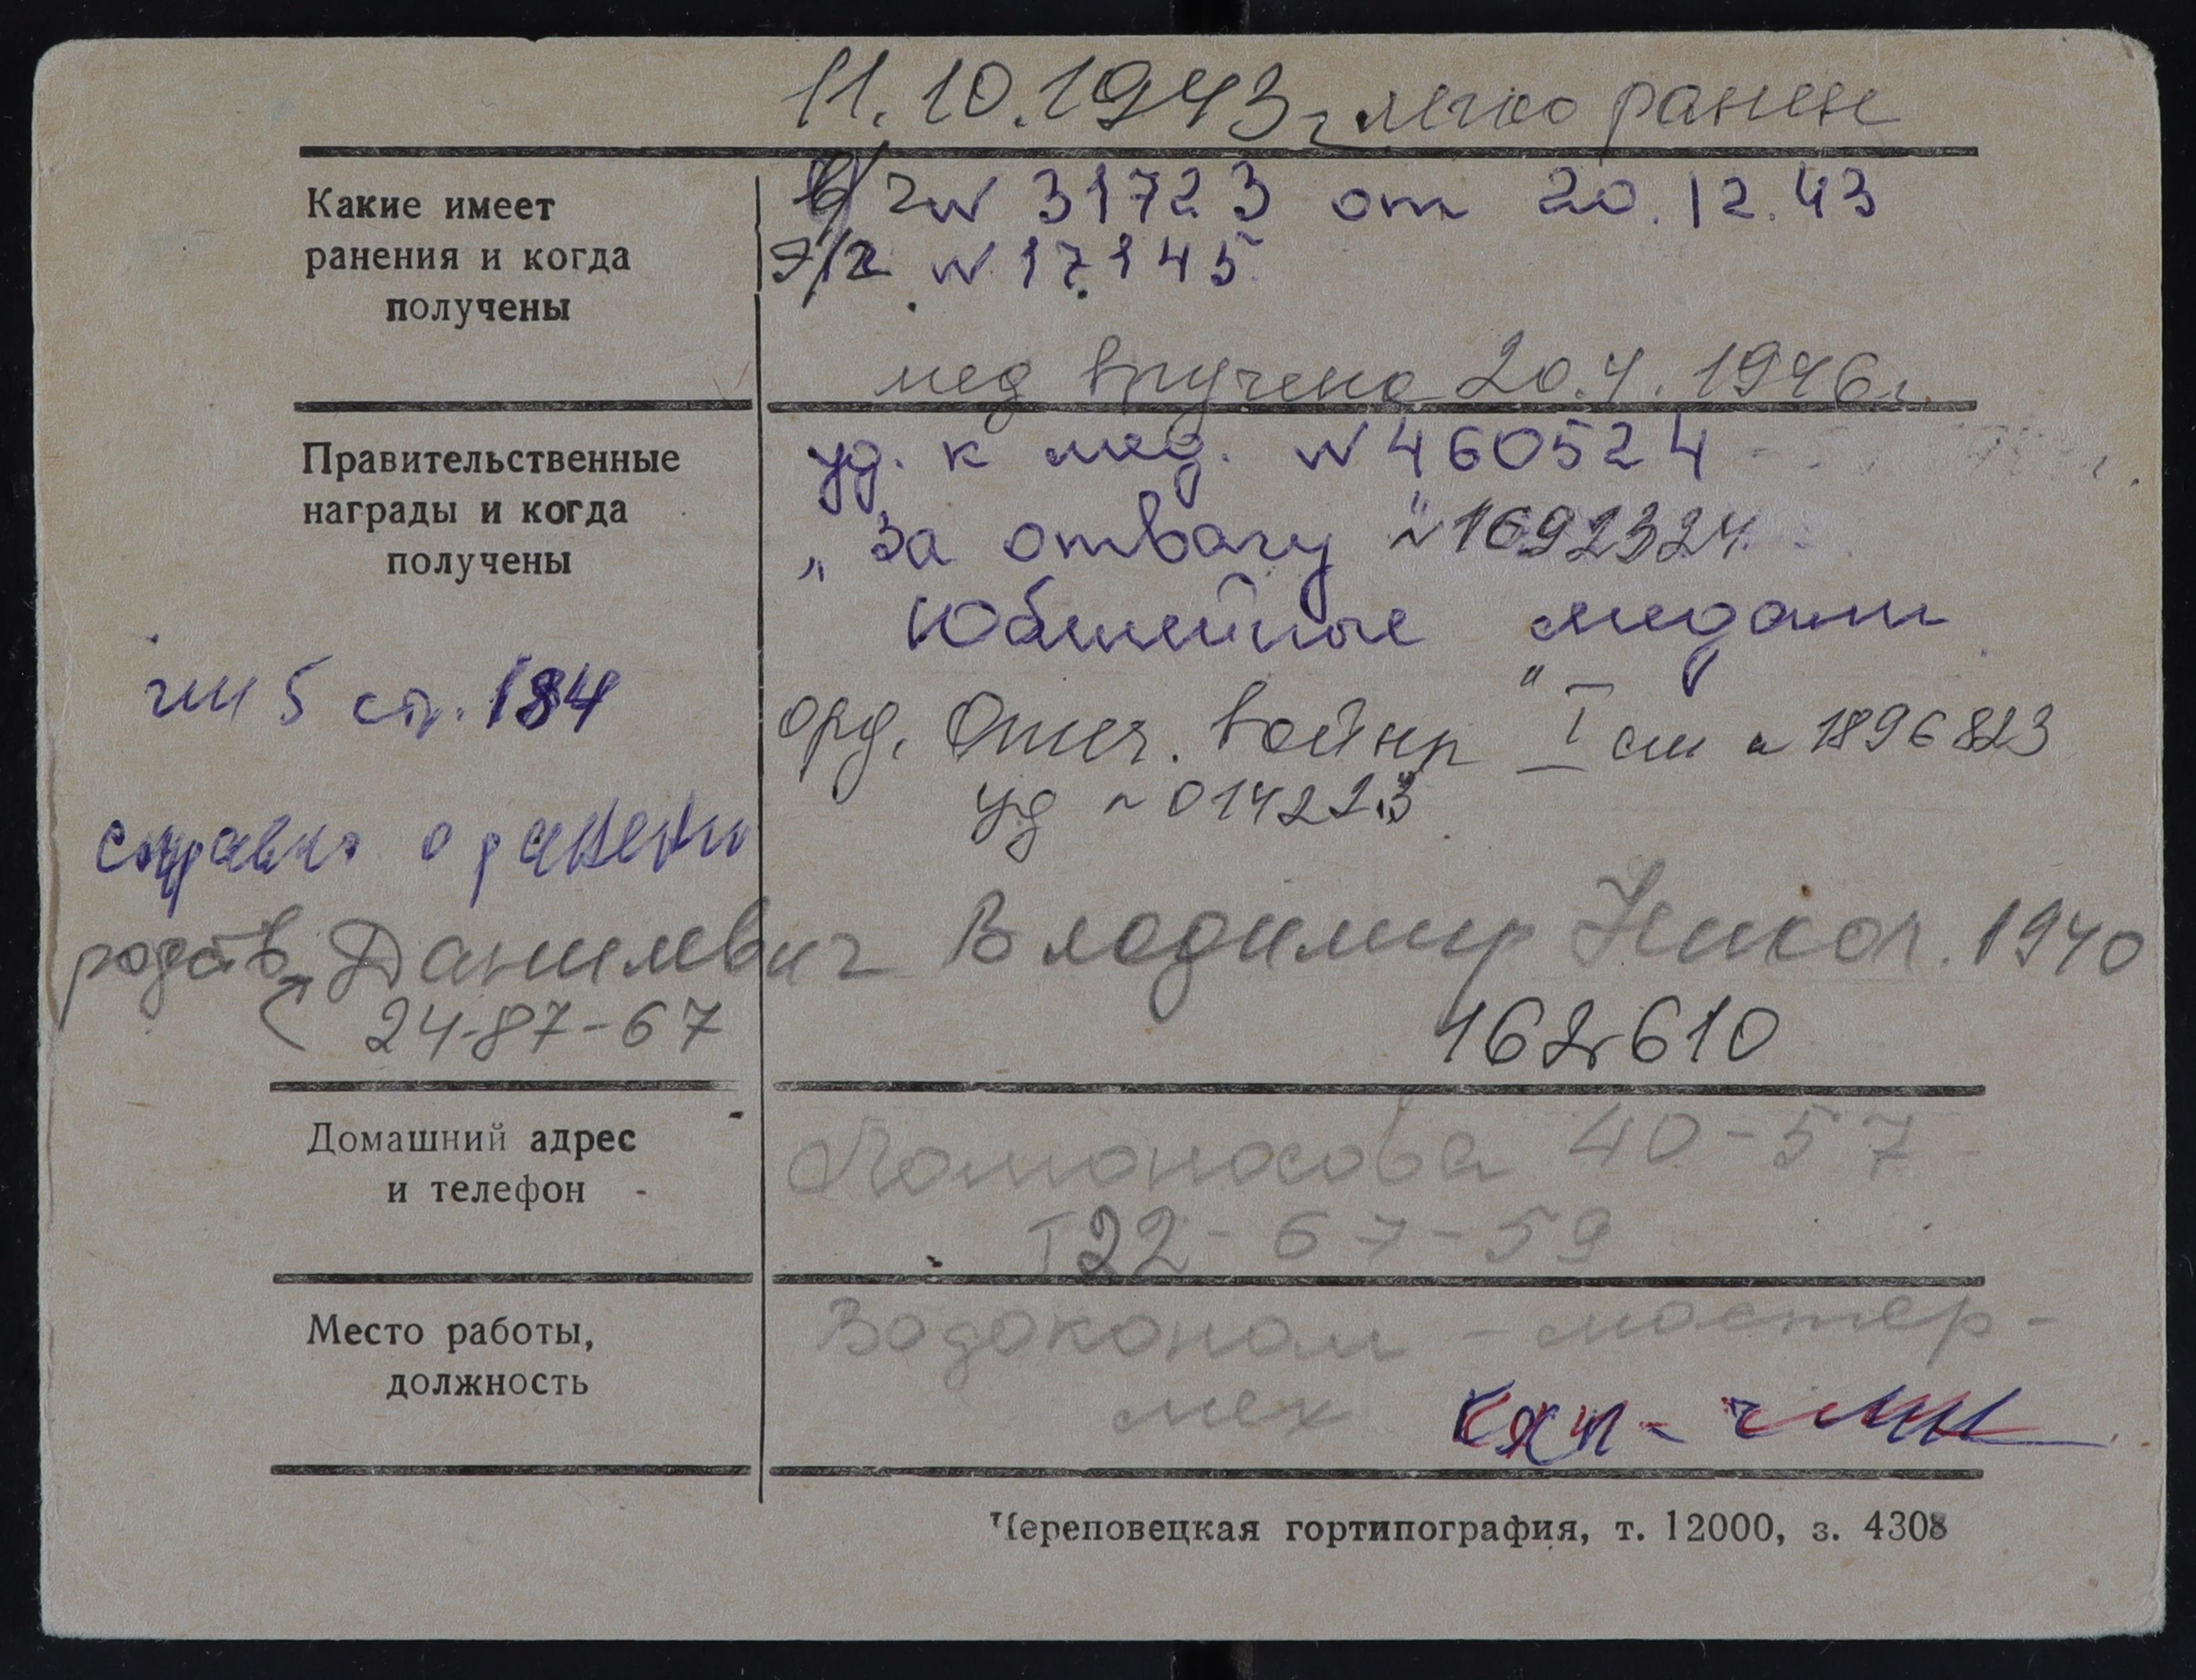 11.10.1943 г легко ранен
Какие имеет
ранения и когда
получены
г N 31723 от 20.12.43
э/г N 17145
мед вручена 20.4.1946 г.
Правительственные
награды и когда
получены
уд. к мед. N 460524
„За отвагу" N 1692324
Юбилейные медали
чл 5 ст. 184
орд. Отеч. войны I ст N 1896823
уд N 014223
справка о ранении
родств. Данилевич Владимир Никол. 1940
24-87-67
162610
Домашний адрес
и телефон
Ломоносова 40-57
Т 22-67-59
Место работы,
должность
Водоканал - мастер -
мех
Череповецкая гортипография, т. 12000, з. 4308